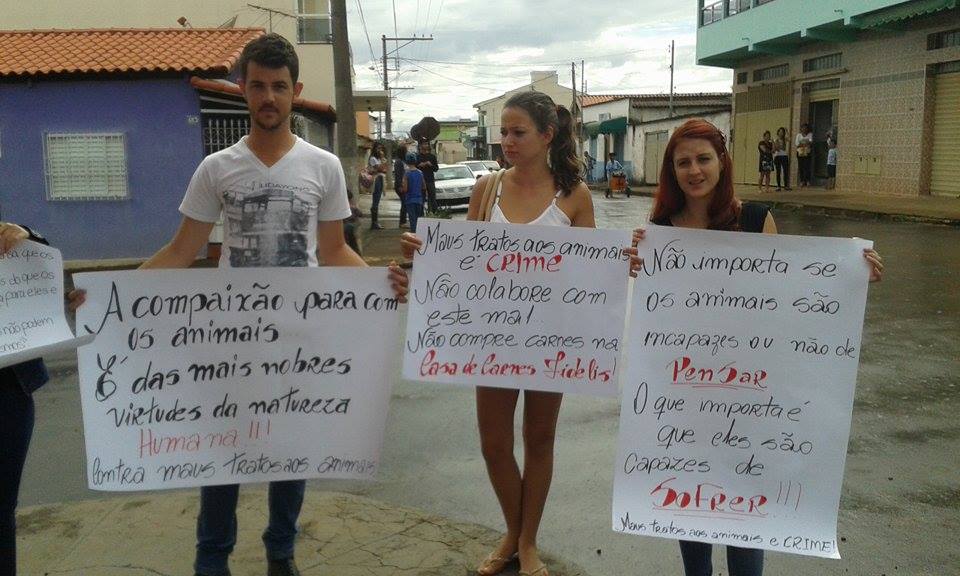 que os
do que os
para eles e
não podem
A compaixão para com
os animais
É das mais nobres
virtudes da natureza
Humana!!!
Contra maus tratos aos animais
Maus tratos aos animais
é CRIME
Não colabore com
este mal.
Não compre carnes na
Casa de Carnes Fidelis!
Não importa se
os animais são
incapazes ou não de
Pensar
O que importa é
que eles são
capazes de
Sofrer!!!
Maus tratos aos animais e CRIME!